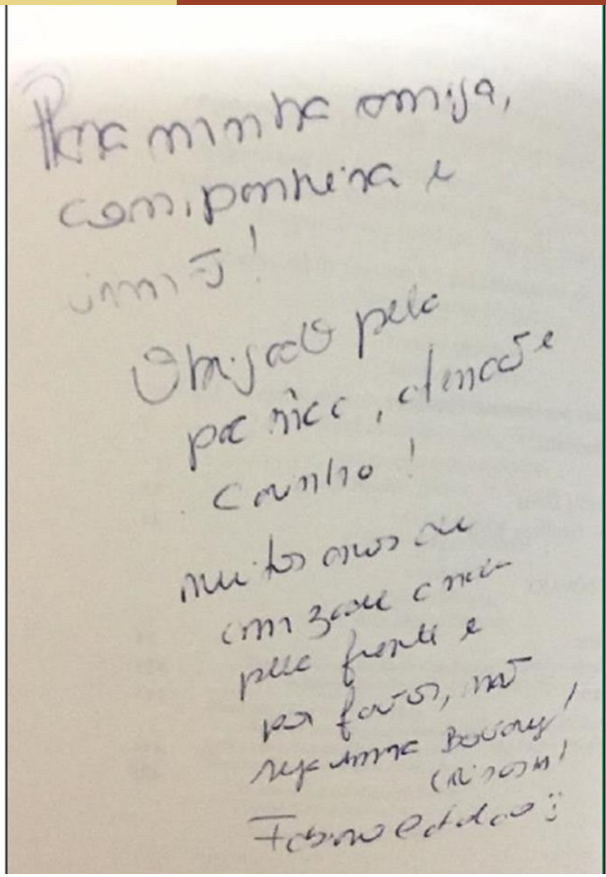 Para minha amiga,
companheira e
irmã!
Obrigado pela
paciência, atenção e
carinho!
Muitos anos de
amizade ainda
pela frente e
por favor, não
seja uma Bovary!
(Risos)!
Fabiano